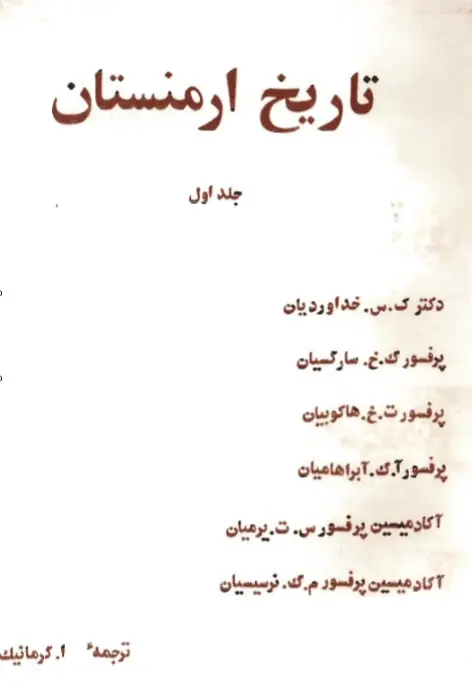 تاریخ ارمنستان
جلد اول
دکتر ک.س. خداوردیان
پرفسور ک.خ. سارکسیان
پرفسور ت.خ.هاکوبیان
پرفسور آ.ک.آبراهامیان
آکادمیسین پرفسور س.ت.یرمیان
آکادمیسین پرفسور م.ک.نرسیسیان
ترجمهٔ ا.گرمانیک